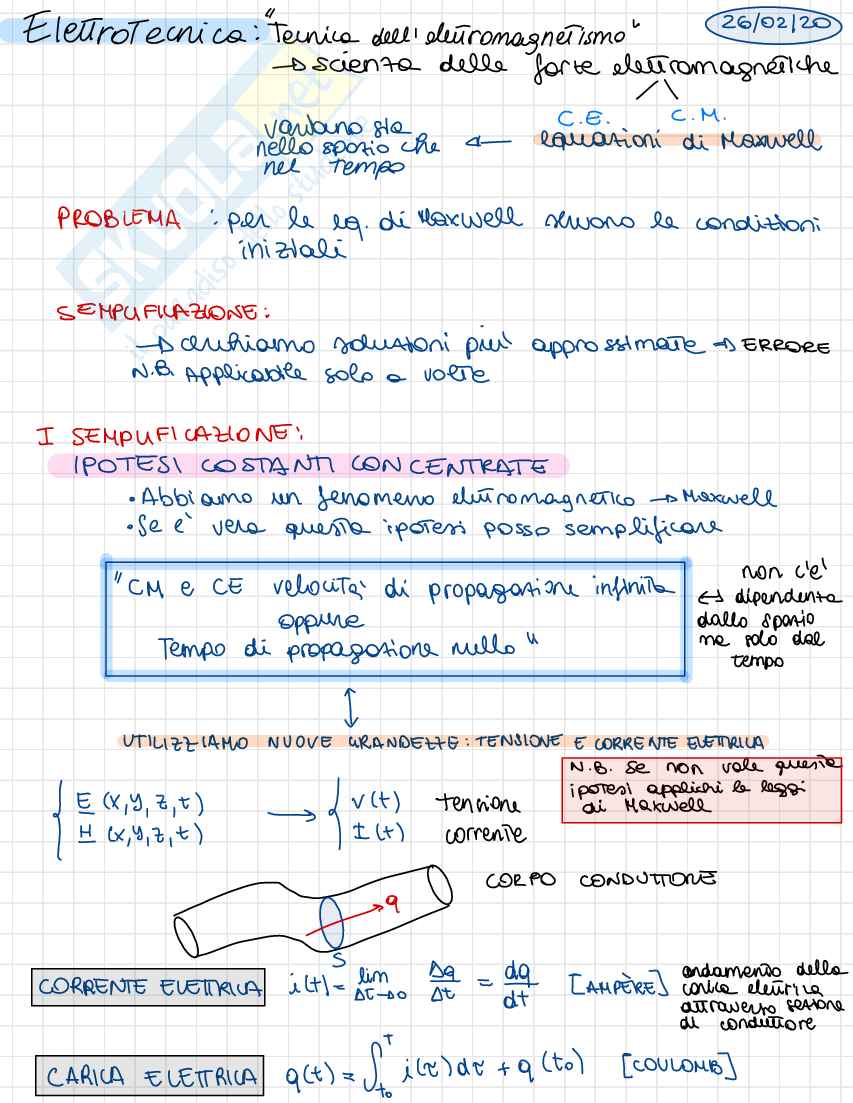 ElettroTecnica: "Tecnica dell'elettromagnetismo"
26/02/20
→ scienza delle forze elettromagnetiche
C.E. C.M.
variano sia
nello spazio che ← equazioni di Maxwell
nel tempo
SKUOLA.net
il paradiso dello studente
PROBLEMA : per le eq. di Maxwell servono le condizioni
iniziali
SEMPLIFICAZIONE:
→ cerchiamo soluzioni più approssimate → ERRORE
N.B. Applicabile solo a volte
I SEMPLIFICAZIONE:
IPOTESI COSTANTI CONCENTRATE
• Abbiamo un fenomeno elettromagnetico → Maxwell
• Se è vera questa ipotesi posso semplificare
"CM e CE velocità di propagazione infinita
oppure
Tempo di propagazione nullo"
non c'è
↔ dipendenza
dallo spazio
ma solo dal
tempo
↕
UTILIZZIAMO NUOVE GRANDEZZE: TENSIONE E CORRENTE ELETTRICA
N.B. Se non vale questa
ipotesi applichi le leggi
di Maxwell
{ E (x,y,z,t) → { v(t) tensione
H (x,y,z,t) I(t) corrente
CORPO CONDUTTORE
q
S
CORRENTE ELETTRICA i(t) = lim Δt→0 Δq/Δt = dq/dt [AMPÈRE]
andamento della
carica elettrica
attraverso sezione
di conduttore
CARICA ELETTRICA q(t) = ∫_{t₀}^{T} i(τ) dτ + q(t₀) [COULOMB]